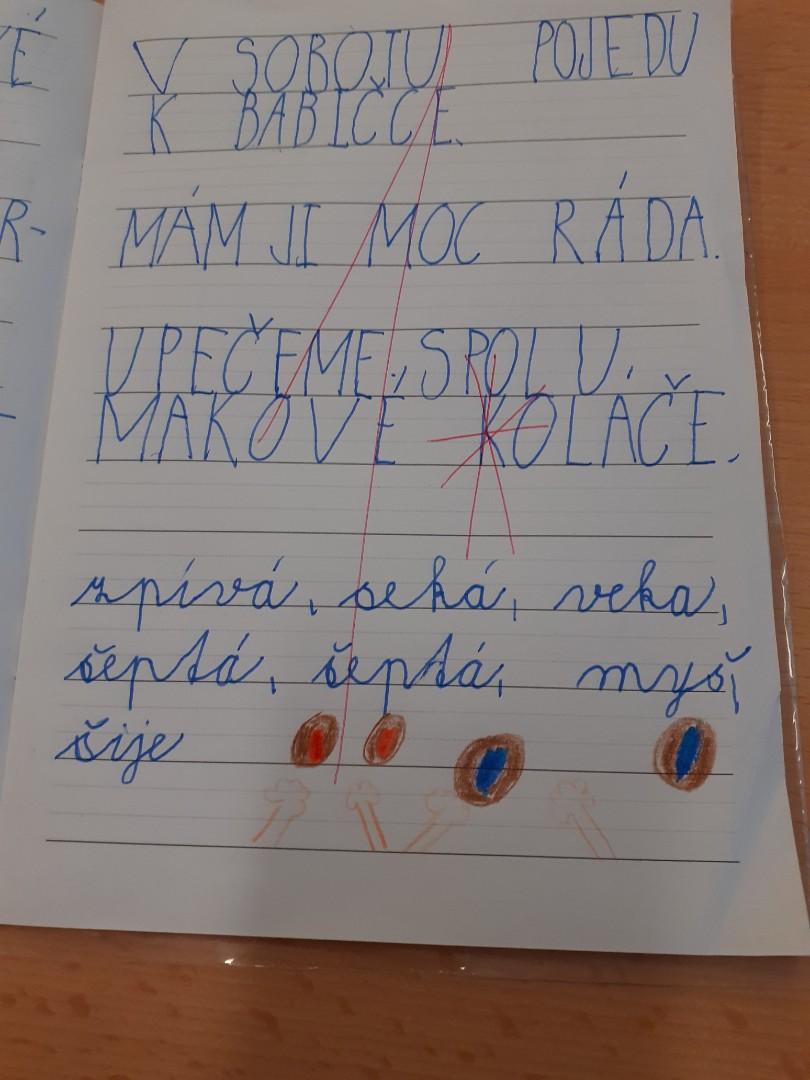 É
V SOBOTU POJEDU
K BABIČCE.
R-
MÁM JI MOC RÁDA.
UPEČEME SPOLU
MAKOVÉ KOLÁČE.
zpívá, seká, veka,
šeptá, šeptá, myš,
šije